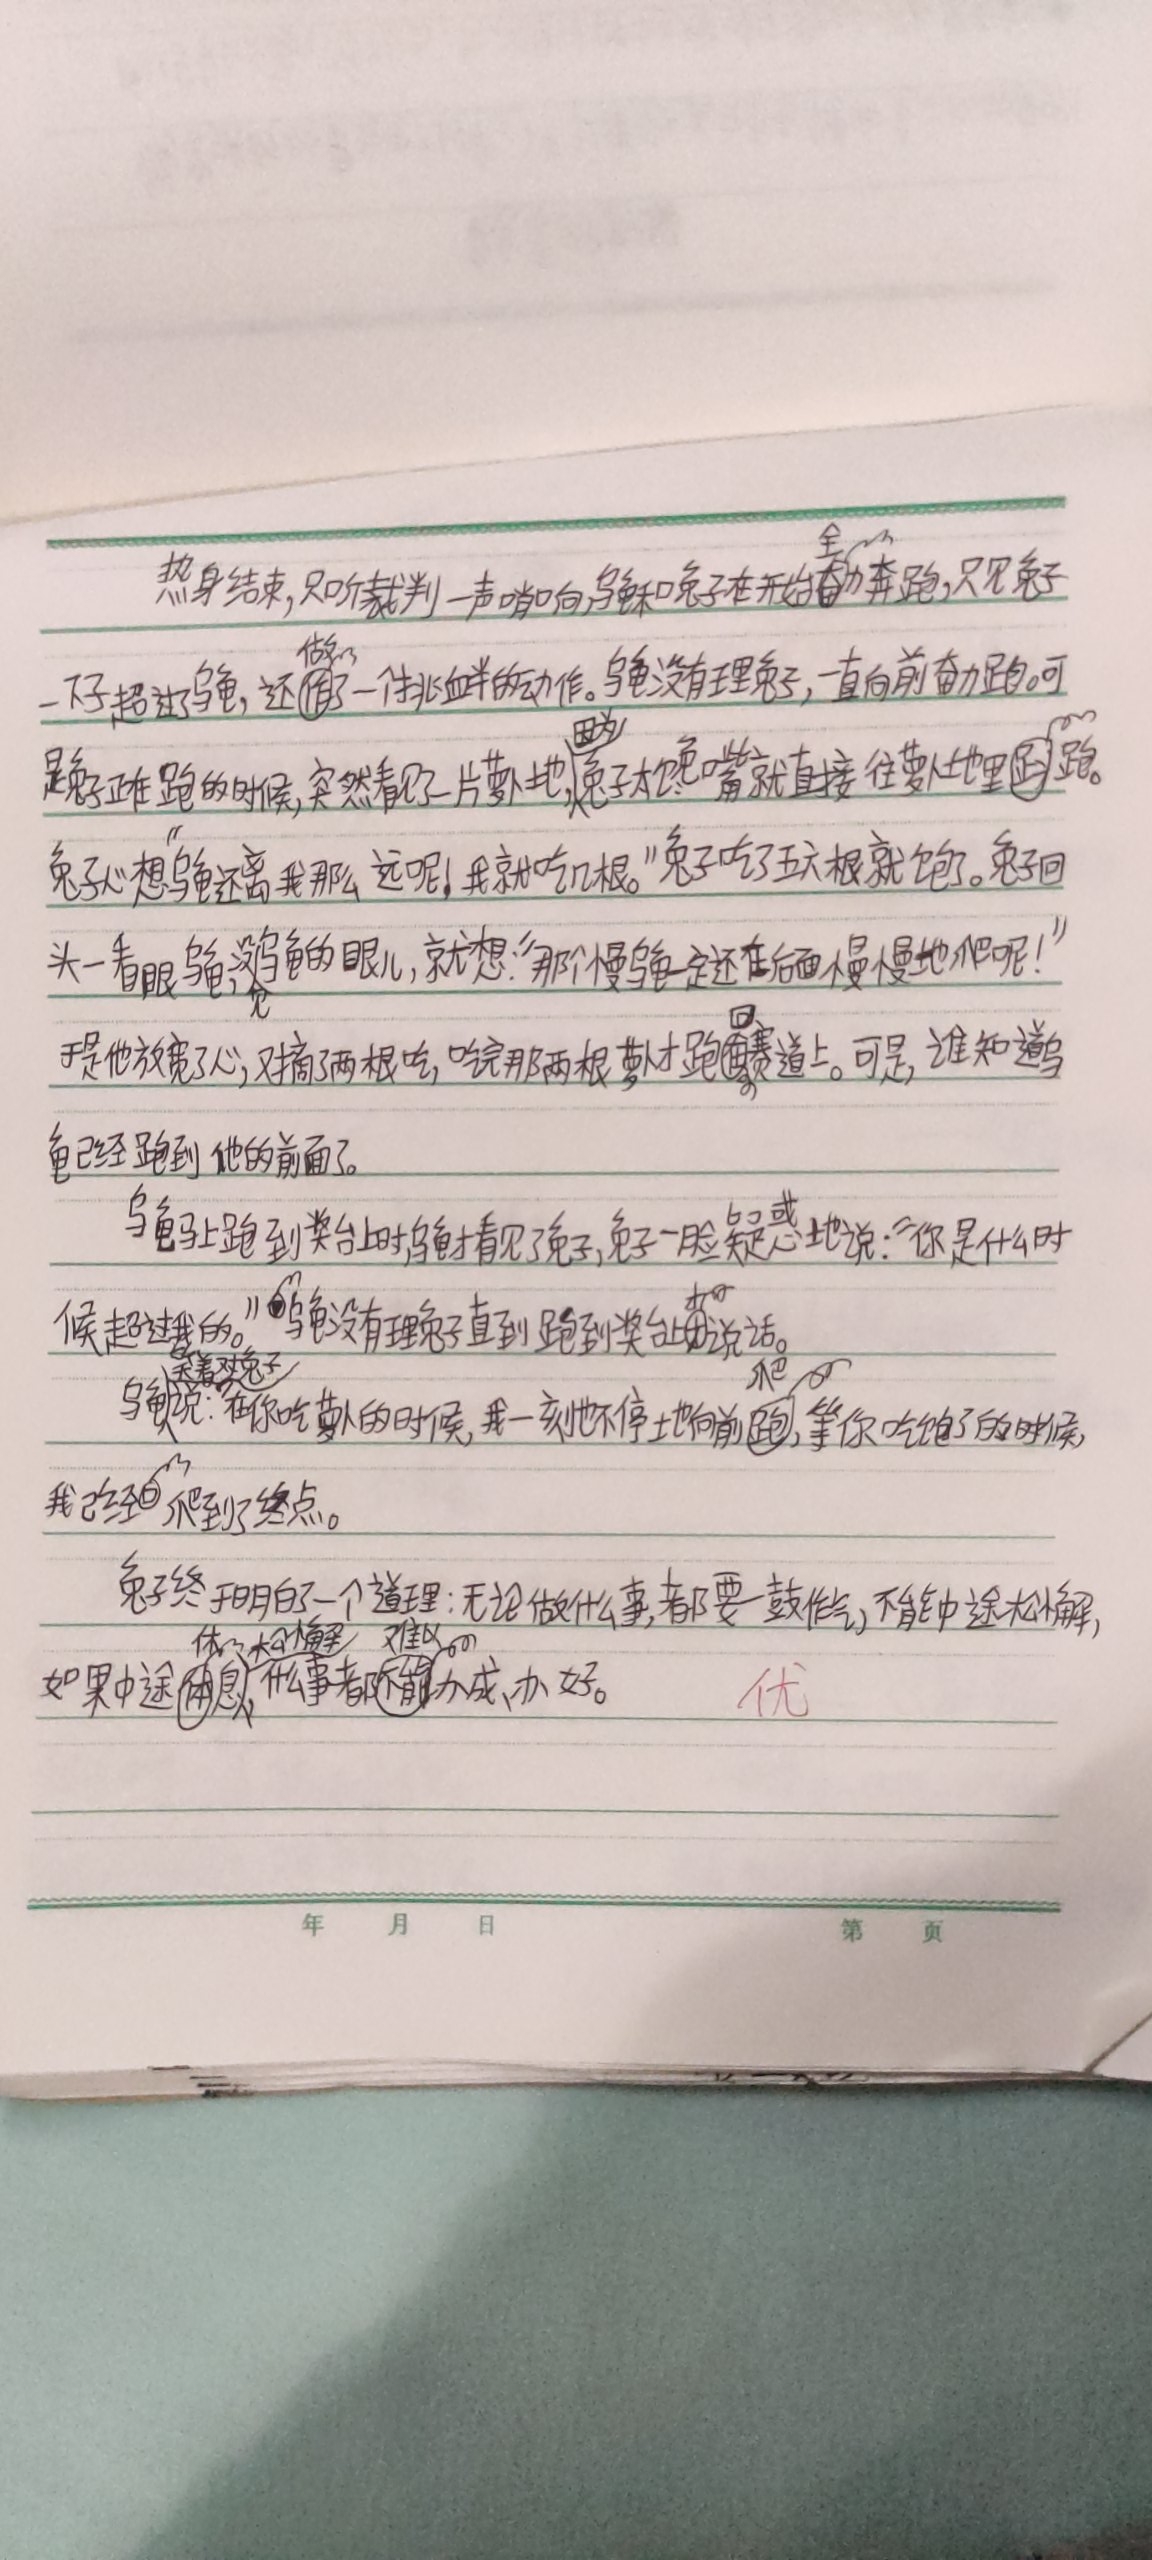 热身结束,只听裁判一声哨响,乌龟和兔子在开始全力奔跑,只见兔子
一下子超过了乌龟,还做了一个挑衅的动作。乌龟没有理兔子,一直向前奋力跑。可
是兔子正在跑的时候,突然看见了一片萝卜地,因为兔子太馋嘴就直接往萝卜地里跑。
兔子心想“乌龟还离我那么远呢!我就吃几根。”兔子吃了五六根就饱了。兔子回
头一看眼乌龟,没见乌龟的影儿,就想:“那个慢乌龟一定还在后面慢慢地爬呢!”
于是他放宽了心,又摘了两根吃,吃完那两根萝卜才跑回赛道上。可是,谁知道乌
龟已经跑到他的前面了。
乌龟马上跑到奖台上时,乌龟才看见了兔子,兔子一脸疑惑地说:“你是什么时
候超过我的。”乌龟没有理兔子直到跑到奖台上才说话。
乌龟笑着对兔子说:在你吃萝卜的时候,我一刻也不停地向前爬,等你吃饱了的时候,
我已经爬到了终点。
兔子终于明白了一个道理:无论做什么事,都要一鼓作气,不能中途松懈,
如果中途休息、松懈,什么事都难以办成、办好。
优
年 月 日 第 页